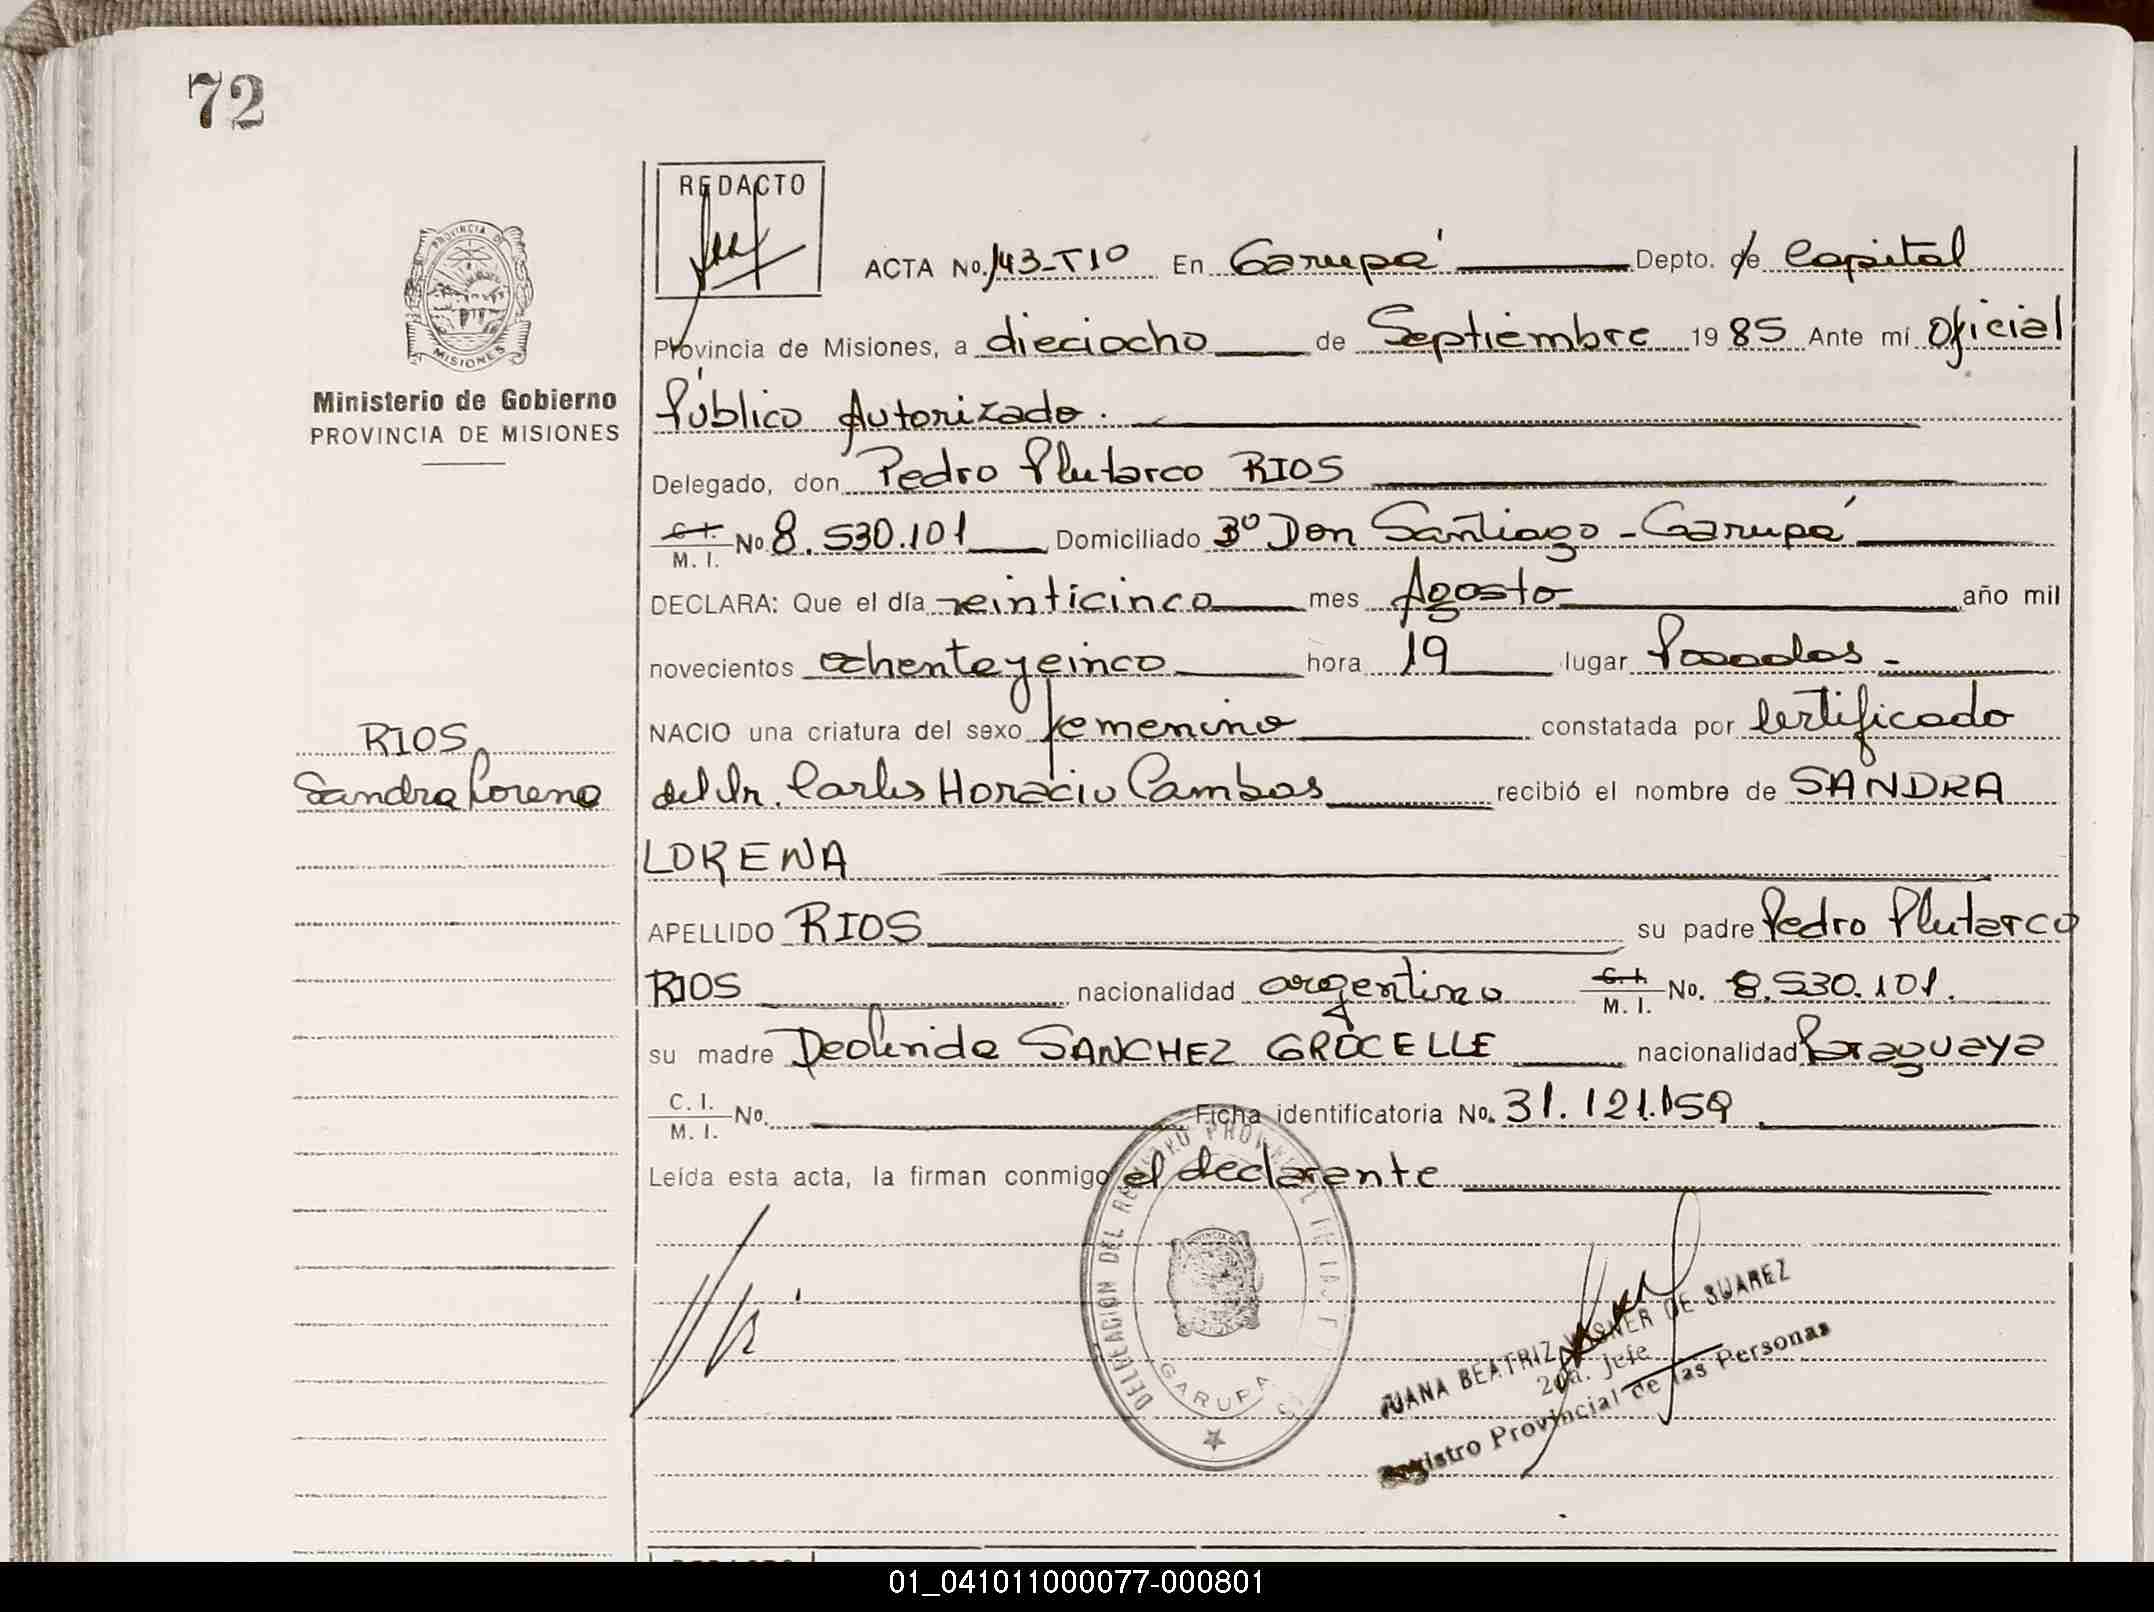 72
REDACTO
PROVINCIA DE
MISIONES
Ministerio de Gobierno
PROVINCIA DE MISIONES
ACTA No. 143-T10 En Garupá Depto. de Capital
Provincia de Misiones, a dieciocho de Septiembre 1985 Ante mí Oficial
Público Autorizado.
Delegado, don Pedro Plutarco RIOS
C. I. / M. I. No 8.530.101 Domiciliado Bº Don Santiago - Garupá
DECLARA: Que el día veinticinco mes Agosto año mil
novecientos ochenta y cinco hora 19 lugar Posadas-
NACIO una criatura del sexo femenino constatada por Certificado
del Dr. Carlos Horacio Cambas recibió el nombre de SANDRA
LORENA
RIOS
Sandra Lorena
APELLIDO RIOS su padre Pedro Plutarco
RIOS nacionalidad argentino C. I. / M. I. No. 8.530.101.
su madre Deolinda SANCHEZ GROCELLE nacionalidad Paraguaya
C. I. / M. I. No. Ficha identificatoria No. 31.121.159
Leída esta acta, la firman conmigo el declarente
DELEGACION DEL REGISTRO PROVINCIAL DE LAS
GARUPA
JUANA BEATRIZ WISNER DE SUAREZ
2da. Jefe
Registro Provincial de las Personas
01_041011000077-000801